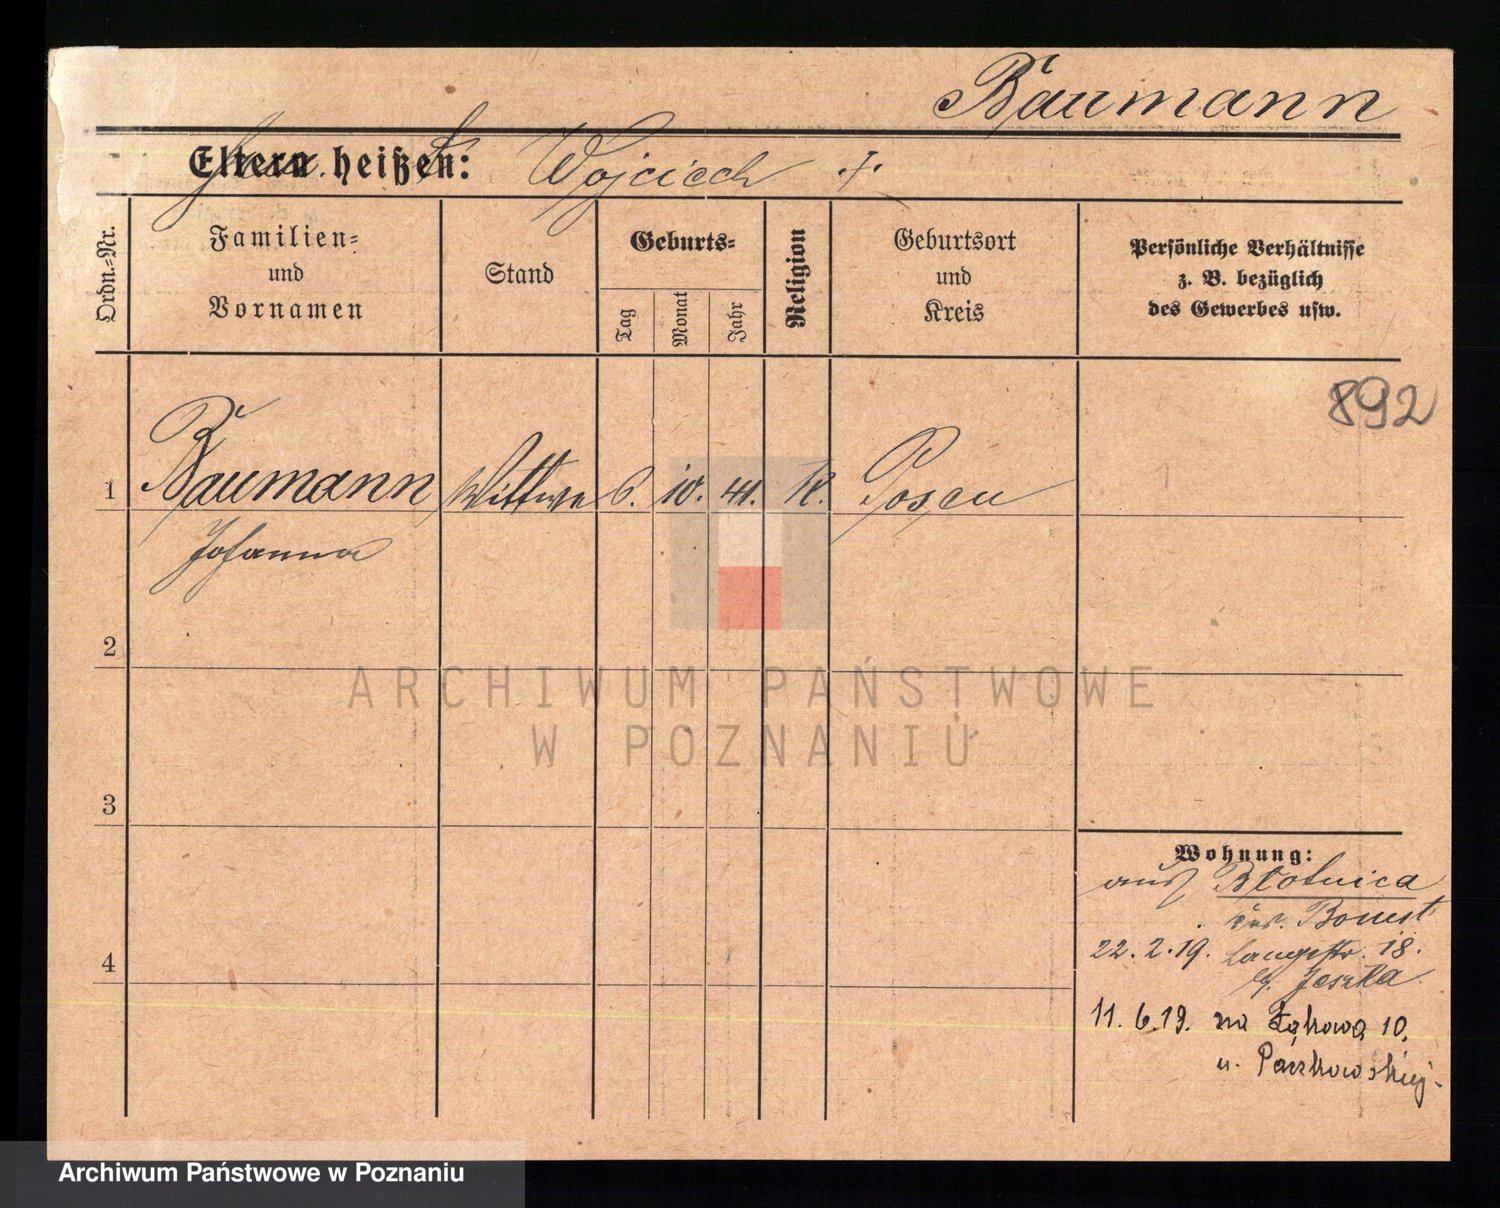 Baumann
Eltern heißen: Wojciech +.
Ordn.-Nr.
Familien-
und
Vornamen
Stand
Geburts-
Tag
Monat
Jahr
Religion
Geburtsort
und
Kreis
Persönliche Verhältnisse
z. B. bezüglich
des Gewerbes usw.
892
1 Baumann Wittwe 6. 10. 41. K. Posen
Johanna
2
3
4
Wohnung:
aus Błotnica
Krs. Bomst
22. 2. 19. Langestr. 18.
b. Jeszka
11. 6. 19. na Łąkową 10.
u. Paczkowskiej.
ARCHIWUM PAŃSTWOWE
W POZNANIU
Archiwum Państwowe w Poznaniu